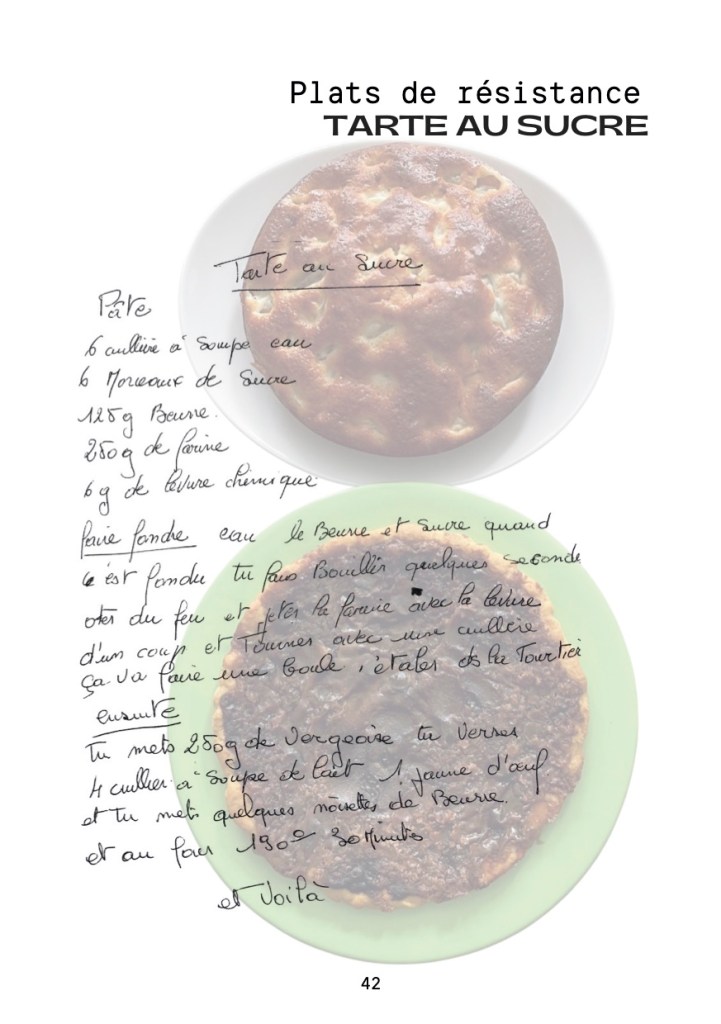 Plats de résistance
TARTE AU SUCRE
Tarte au Sucre
Pâte
6 cuillère à Soupe eau
6 Morceaux de Sucre
125g Beurre.
250g de farine
6g de levure chimique
faire fondre eau le Beurre et Sucre quand
c'est fondu tu fais Bouillir quelques seconde
oter du feu et jeter la farine avec la levure
d'un coup et Tourner avec une cuillère
ça va faire une boule, étaler ds la Tourtier
ensuite
Tu mets 250g de Vergeoise tu verses
4 cuiller à Soupe de lait 1 jaune d'œuf
et tu mets quelques noisettes de Beurre.
et au four 190° 30 Minutes
et Voilà
42